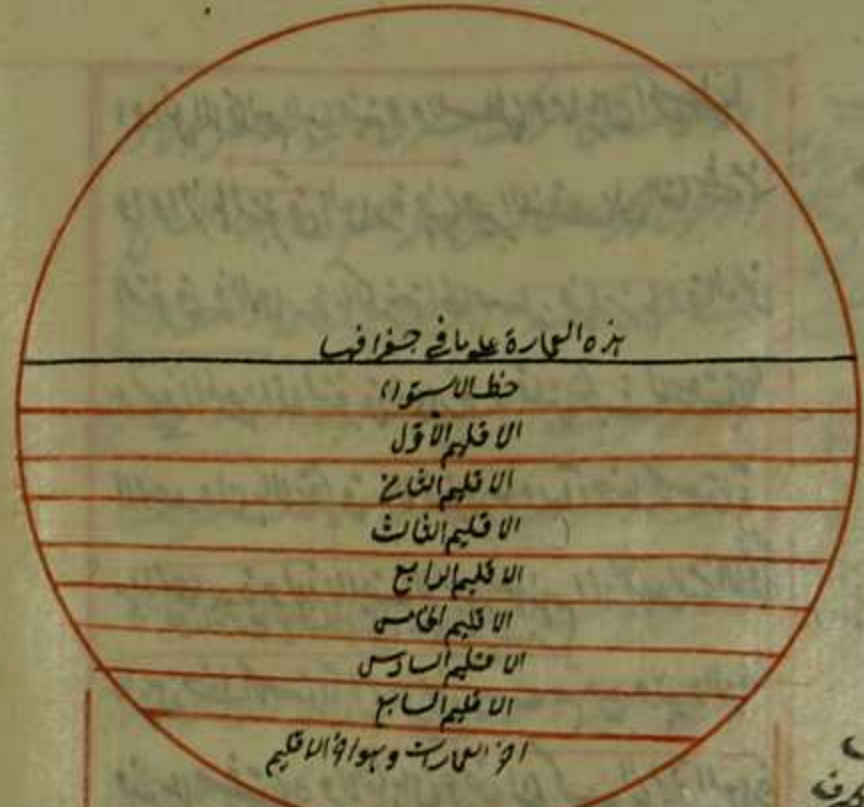 هذه العمارة على ما في جغرافيا
خط الاستوا
الاقليم الاول
الاقليم الثاني
الاقليم الثالث
الاقليم الرابع
الاقليم الخامس
الاقليم السادس
الاقليم السابع
اخر العمارت وهو اخر الاقليم